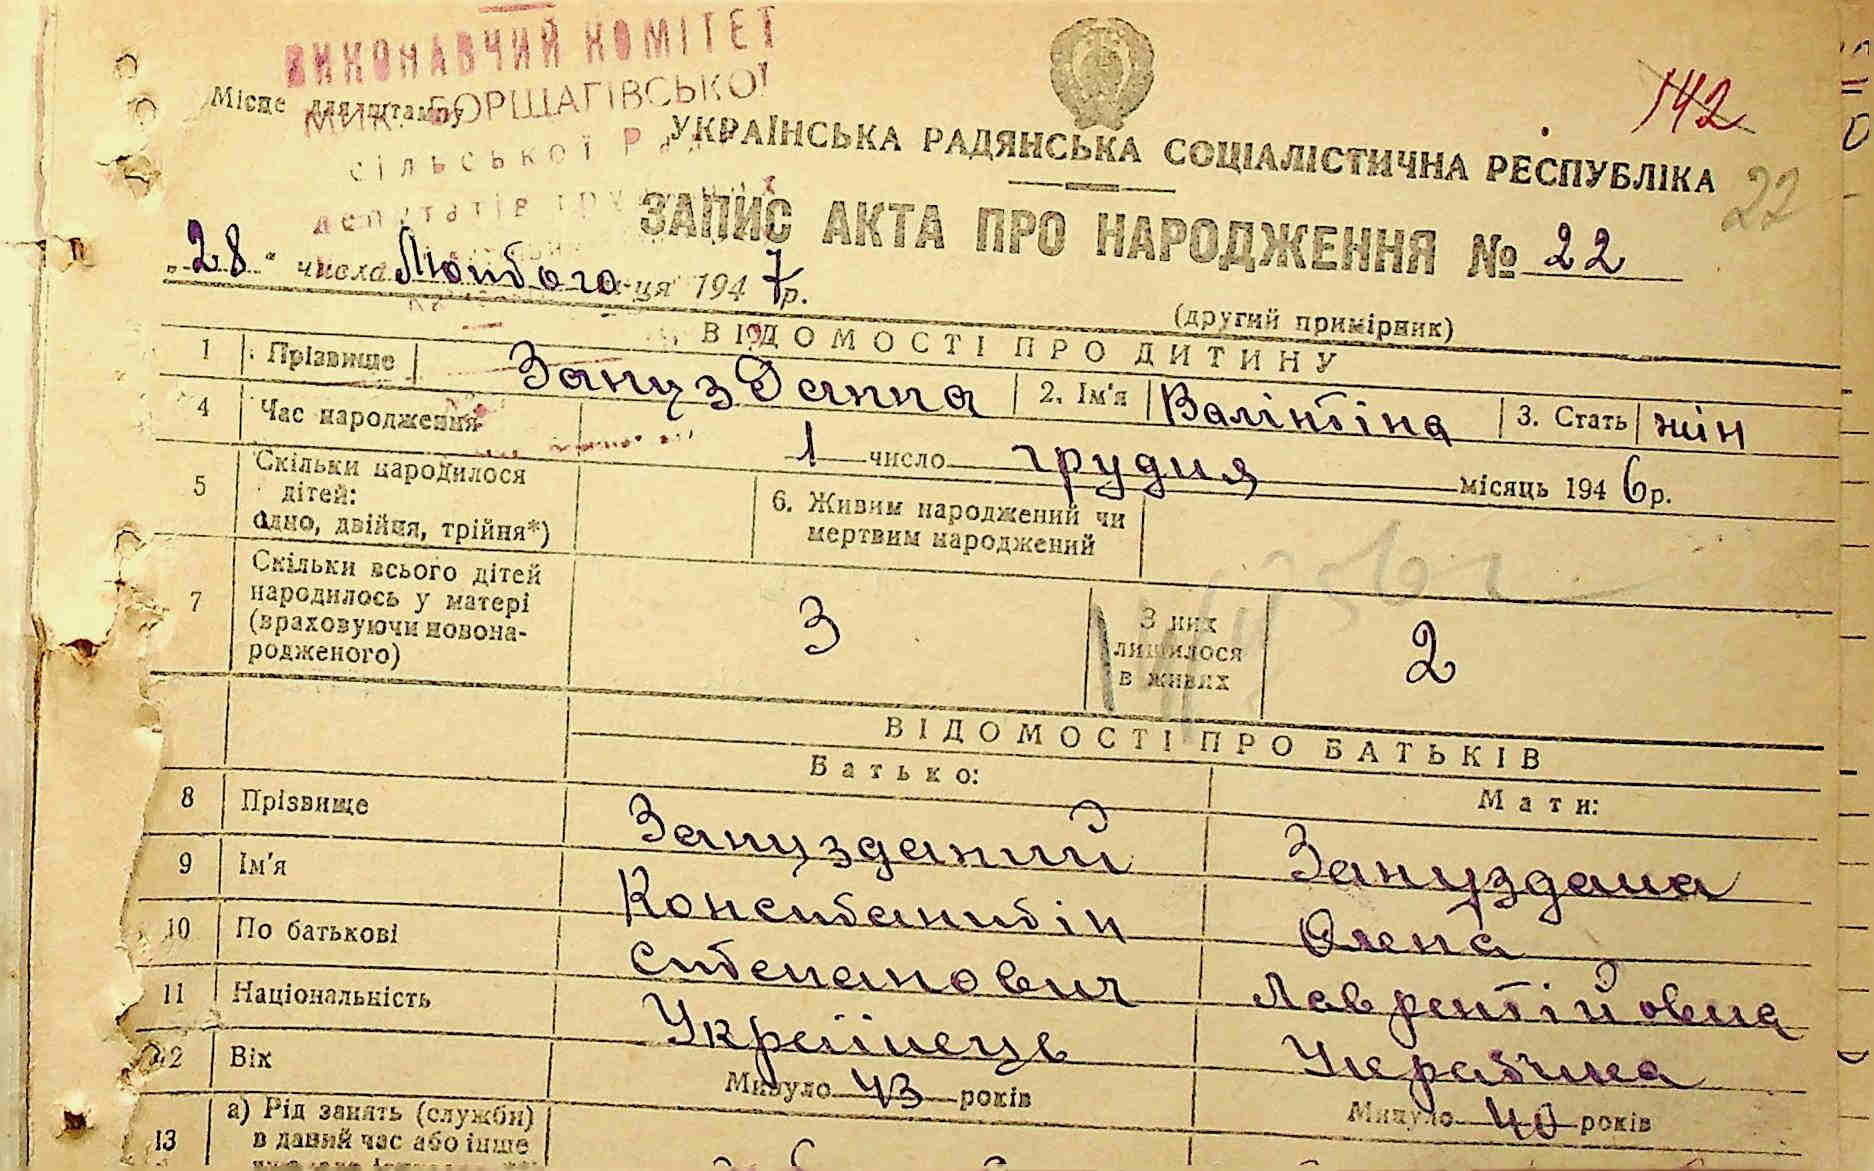 ВИКОНАВЧИЙ КОМІТЕТ
Місце для штампу
МИК. БОРЩАГІВСЬКОЇ
сільської Ра
депутатів тру
142
УКРАЇНСЬКА РАДЯНСЬКА СОЦІАЛІСТИЧНА РЕСПУБЛІКА
22
ЗАПИС АКТА ПРО НАРОДЖЕННЯ № 22
„28“ числа Лютого м-ця 1947р.
(другий примірник)
ВІДОМОСТІ ПРО ДИТИНУ
1 Прізвище Зануздана 2. Ім'я Валінтіна 3. Стать жін
4 Час народження 1 число грудня місяць 1946р.
5 Скільки народилося
дітей:
одно, двійня, трійня*)
6. Живим народжений чи
мертвим народжений
7 Скільки всього дітей
народилось у матері
(враховуючи новона-
родженого)
3
З них
лишилося
в живих
2
ВІДОМОСТІ ПРО БАТЬКІВ
Батько: Мати:
8 Прізвище Зануздании Зануздана
9 Ім'я Константін Олена
10 По батькові Степанович Лаврентійовна
11 Національність Українець Українка
12 Вік Минуло 43 років Минуло 40 років
13 а) Рід занять (служби)
в даний час або інше